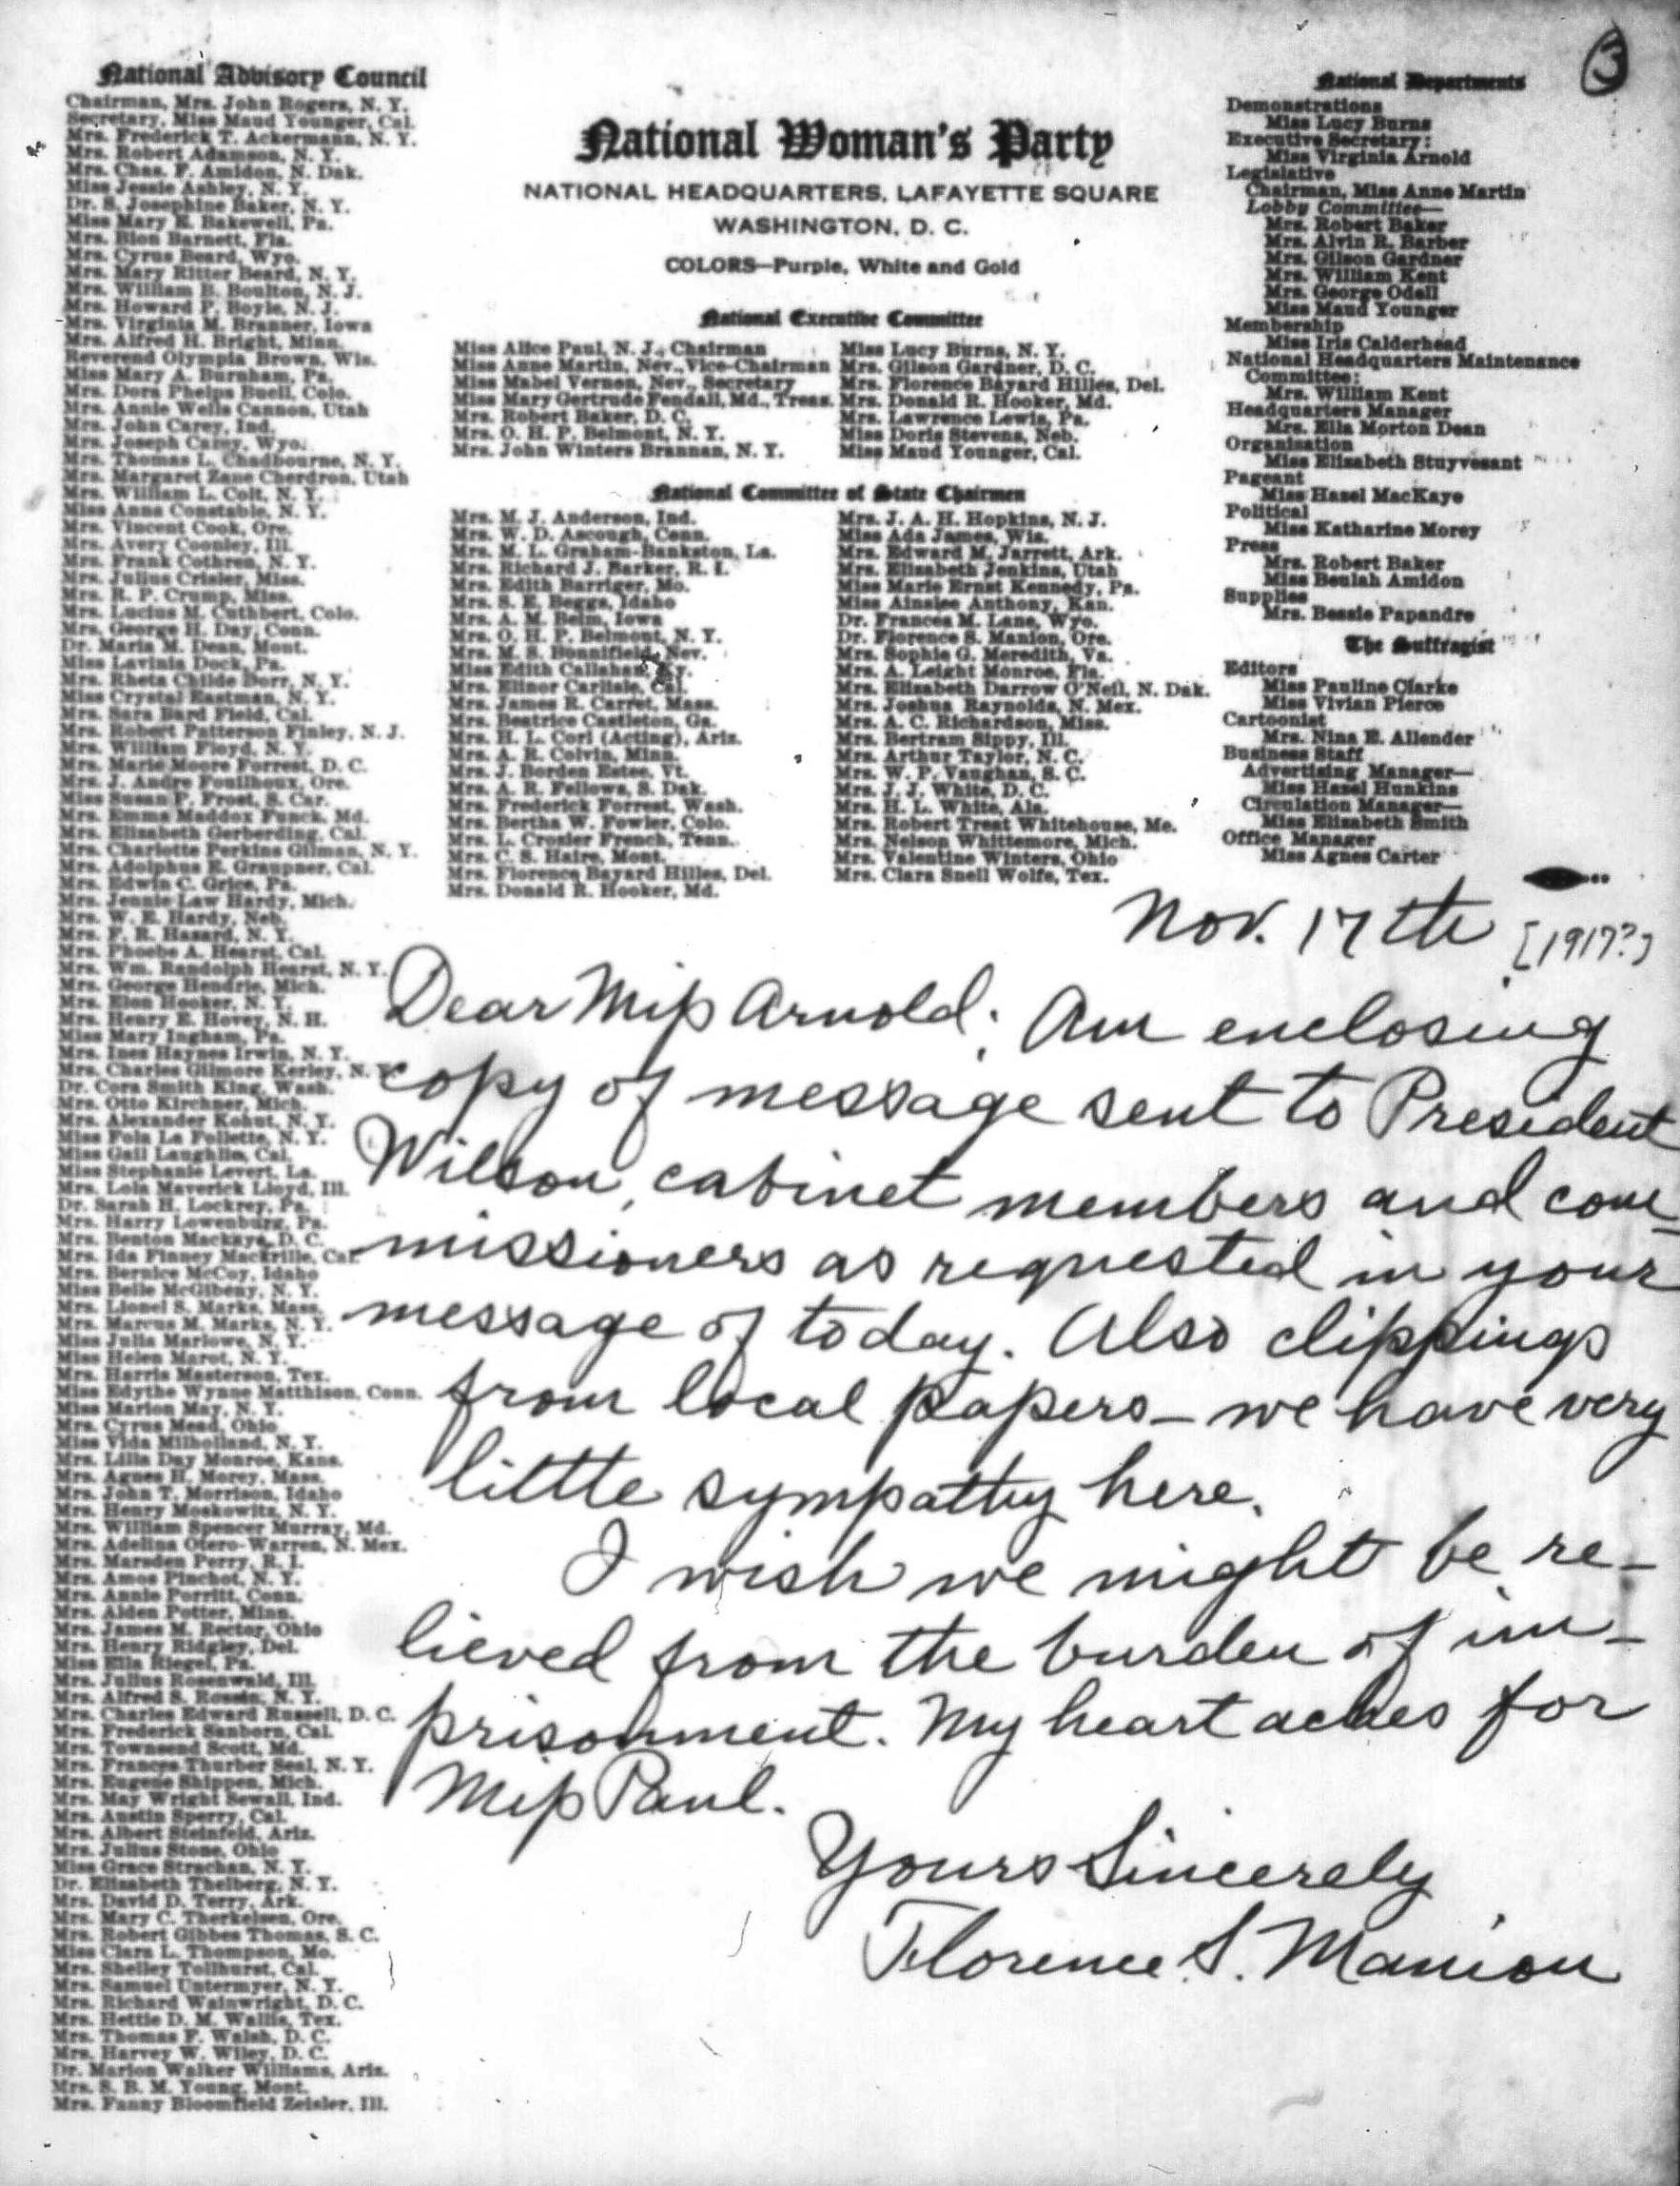 3
National Advisory Council
Chairman, Mrs. John Rogers, N. Y.
Secretary, Miss Maud Younger, Cal.
Mrs. Frederick T. Ackermann, N. Y.
Mrs. Robert Adamson, N. Y.
Mrs. Chas. F. Amidon, N. Dak.
Miss Jessie Ashley, N. Y.
Dr. S. Josephine Baker, N. Y.
Miss Mary E. Bakewell, Pa.
Mrs. Bion Barnett, Fla.
Mrs. Cyrus Beard, Wyo.
Mrs. Mary Ritter Beard, N. Y.
Mrs. William B. Boulton, N. J.
Mrs. Howard P. Boyle, N. J.
Mrs. Virginia M. Branner, Iowa
Mrs. Alfred H. Bright, Minn.
Reverend Olympia Brown, Wis.
Miss Mary A. Burnham, Pa.
Mrs. Dora Phelps Buell, Colo.
Mrs. Annie Wells Cannon, Utah
Mrs. John Carey, Ind.
Mrs. Joseph Carey, Wyo.
Mrs. Thomas L. Chadbourne, N. Y.
Mrs. Margaret Zane Cherdron, Utah
Mrs. William L. Colt, N. Y.
Miss Anna Constable, N. Y.
Mrs. Vincent Cook, Ore.
Mrs. Avery Coonley, Ill.
Mrs. Frank Cothren, N. Y.
Mrs. Julius Crisler, Miss.
Mrs. R. P. Crump, Miss.
Mrs. Lucius M. Cuthbert, Colo.
Mrs. George H. Day, Conn.
Dr. Maria M. Dean, Mont.
Miss Lavinia Dock, Pa.
Mrs. Rheta Childe Dorr, N. Y.
Miss Crystal Eastman, N. Y.
Mrs. Sara Bard Field, Cal.
Mrs. Robert Patterson Finley, N. J.
Mrs. William Floyd, N. Y.
Mrs. Marie Moore Forrest, D. C.
Mrs. J. Andre Fouilhoux, Ore.
Miss Susan P. Frost, S. Car.
Mrs. Emma Maddox Funck, Md.
Mrs. Elisabeth Gerberding, Cal.
Mrs. Charlotte Perkins Gilman, N. Y.
Mrs. Adolphus E. Graupner, Cal.
Mrs. Edwin C. Grice, Pa.
Mrs. Jennie Law Hardy, Mich.
Mrs. W. E. Hardy, Neb.
Mrs. F. R. Hazard, N. Y.
Mrs. Phoebe A. Hearst, Cal.
Mrs. Wm. Randolph Hearst, N. Y.
Mrs. George Hendrie, Mich.
Mrs. Elon Hooker, N. Y.
Mrs. Henry E. Hovey, N. H.
Miss Mary Ingham, Pa.
Mrs. Ines Haynes Irwin, N. Y.
Mrs. Charles Gilmore Kerley, N. Y.
Dr. Cora Smith King, Wash.
Mrs. Otto Kirchner, Mich.
Mrs. Alexander Kohut, N. Y.
Miss Fola La Follette, N. Y.
Miss Gail Laughlin, Cal.
Miss Stephanie Levert, La.
Mrs. Lola Maverick Lloyd, Ill.
Dr. Sarah H. Lockrey, Pa.
Mrs. Harry Lowenburg, Pa.
Mrs. Benton Mackaye, D. C.
Mrs. Ida Finney Mackrille, Cal.
Mrs. Bernice McCoy, Idaho
Miss Belle McGibeny, N. Y.
Mrs. Lionel S. Marks, Mass.
Mrs. Marcus M. Marks, N. Y.
Miss Julia Marlowe, N. Y.
Miss Helen Marot, N. Y.
Mrs. Harris Masterson, Tex.
Miss Edythe Wynne Matthison, Conn.
Miss Marion May, N. Y.
Mrs. Cyrus Mead, Ohio
Miss Vida Milholland, N. Y.
Mrs. Lilla Day Monroe, Kans.
Mrs. Agnes H. Morey, Mass.
Mrs. John T. Morrison, Idaho
Mrs. Henry Moskowitz, N. Y.
Mrs. William Spencer Murray, Md.
Mrs. Adelina Otero-Warren, N. Mex.
Mrs. Marsden Perry, R. I.
Mrs. Amos Pinchot, N. Y.
Mrs. Annie Porritt, Conn.
Mrs. Alden Potter, Minn.
Mrs. James M. Rector, Ohio
Mrs. Henry Ridgley, Del.
Miss Ella Riegel, Pa.
Mrs. Julius Rosenwald, Ill.
Mrs. Alfred S. Rossin, N. Y.
Mrs. Charles Edward Russell, D. C.
Mrs. Frederick Sanborn, Cal.
Mrs. Townsend Scott, Md.
Mrs. Frances Thurber Seal, N. Y.
Mrs. Eugene Shippen, Mich.
Mrs. May Wright Sewall, Ind.
Mrs. Austin Sperry, Cal.
Mrs. Albert Steinfeld, Ariz.
Mrs. Julius Stone, Ohio
Miss Grace Strachan, N. Y.
Dr. Elizabeth Thelberg, N. Y.
Mrs. David D. Terry, Ark.
Mrs. Mary C. Therkelsen, Ore.
Mrs. Robert Gibbes Thomas, S. C.
Miss Clara L. Thompson, Mo.
Mrs. Shelley Tolhurst, Cal.
Mrs. Samuel Untermyer, N. Y.
Mrs. Richard Wainwright, D. C.
Mrs. Hettie D. M. Wallis, Tex.
Mrs. Thomas F. Walsh, D. C.
Mrs. Harvey W. Wiley, D. C.
Dr. Marion Walker Williams, Ariz.
Mrs. S. B. M. Young, Mont.
Mrs. Fanny Bloomfield Zeisler, Ill.
National Woman's Party
NATIONAL HEADQUARTERS, LAFAYETTE SQUARE
WASHINGTON, D. C.
COLORS—Purple, White and Gold
National Executive Committee
Miss Alice Paul, N. J., Chairman
Miss Anne Martin, Nev., Vice-Chairman
Miss Mabel Vernon, Nev., Secretary
Miss Mary Gertrude Fendall, Md., Treas.
Mrs. Robert Baker, D. C.
Mrs. O. H. P. Belmont, N. Y.
Mrs. John Winters Brannan, N. Y.
Miss Lucy Burns, N. Y.
Mrs. Gilson Gardner, D. C.
Mrs. Florence Bayard Hilles, Del.
Mrs. Donald R. Hooker, Md.
Mrs. Lawrence Lewis, Pa.
Miss Doris Stevens, Neb.
Miss Maud Younger, Cal.
National Committee of State Chairmen
Mrs. M. J. Anderson, Ind.
Mrs. W. D. Ascough, Conn.
Mrs. M. L. Graham-Bankston, La.
Mrs. Richard J. Barker, R. I.
Mrs. Edith Barriger, Mo.
Mrs. S. E. Beggs, Idaho
Mrs. A. M. Beim, Iowa
Mrs. O. H. P. Belmont, N. Y.
Mrs. M. S. Bonnifield, Nev.
Miss Edith Callahan, Ky.
Mrs. Elinor Carlisle, Cal.
Mrs. James R. Carret, Mass.
Mrs. Beatrice Castleton, Ga.
Mrs. H. L. Corl (Acting), Ariz.
Mrs. A. R. Colvin, Minn.
Mrs. J. Borden Estee, Vt.
Mrs. A. R. Fellows, S. Dak.
Mrs. Frederick Forrest, Wash.
Mrs. Bertha W. Fowler, Colo.
Mrs. L. Crozier French, Tenn.
Mrs. C. S. Haire, Mont.
Mrs. Florence Bayard Hilles, Del.
Mrs. Donald R. Hooker, Md.
Mrs. J. A. H. Hopkins, N. J.
Miss Ada James, Wis.
Mrs. Edward M. Jarrett, Ark.
Mrs. Elizabeth Jenkins, Utah
Miss Marie Ernst Kennedy, Pa.
Miss Ainslee Anthony, Kan.
Dr. Frances M. Lane, Wyo.
Dr. Florence S. Manion, Ore.
Mrs. Sophie G. Meredith, Va.
Mrs. A. Leight Monroe, Fla.
Mrs. Elizabeth Darrow O'Neil, N. Dak.
Mrs. Joshua Raynolds, N. Mex.
Mrs. A. C. Richardson, Miss.
Mrs. Bertram Sippy, Ill.
Mrs. Arthur Taylor, N. C.
Mrs. W. P. Vaughan, S. C.
Mrs. J. J. White, D. C.
Mrs. H. L. White, Ala.
Mrs. Robert Treat Whitehouse, Me.
Mrs. Nelson Whittemore, Mich.
Mrs. Valentine Winters, Ohio
Mrs. Clara Snell Wolfe, Tex.
National Departments
Demonstrations
Miss Lucy Burns
Executive Secretary:
Miss Virginia Arnold
Legislative
Chairman, Miss Anne Martin
Lobby Committee—
Mrs. Robert Baker
Mrs. Alvin R. Barber
Mrs. Gilson Gardner
Mrs. William Kent
Mrs. George Odell
Miss Maud Younger
Membership
Miss Iris Calderhead
National Headquarters Maintenance
Committee:
Mrs. William Kent
Headquarters Manager
Mrs. Ella Morton Dean
Organization
Miss Elizabeth Stuyvesant
Pageant
Miss Hazel MacKaye
Political
Miss Katharine Morey
Press
Mrs. Robert Baker
Miss Beulah Amidon
Supplies
Mrs. Bessie Papandre
The Suffragist
Editors
Miss Pauline Clarke
Miss Vivian Pierce
Cartoonist
Mrs. Nina E. Allender
Business Staff
Advertising Manager—
Miss Hazel Hunkins
Circulation Manager—
Miss Elizabeth Smith
Office Manager
Miss Agnes Carter
Nov. 17th [1917?]
Dear Miss Arnold: Am enclosing
copy of message sent to President
Wilson, cabinet members and com-
missioners as requested in your
message of today. Also clippings
from local papers — we have very
little sympathy here.
I wish we might be re-
lieved from the burden of im-
prisonment. My heart aches for
Miss Paul.
Yours Sincerely
Florence S. Manion